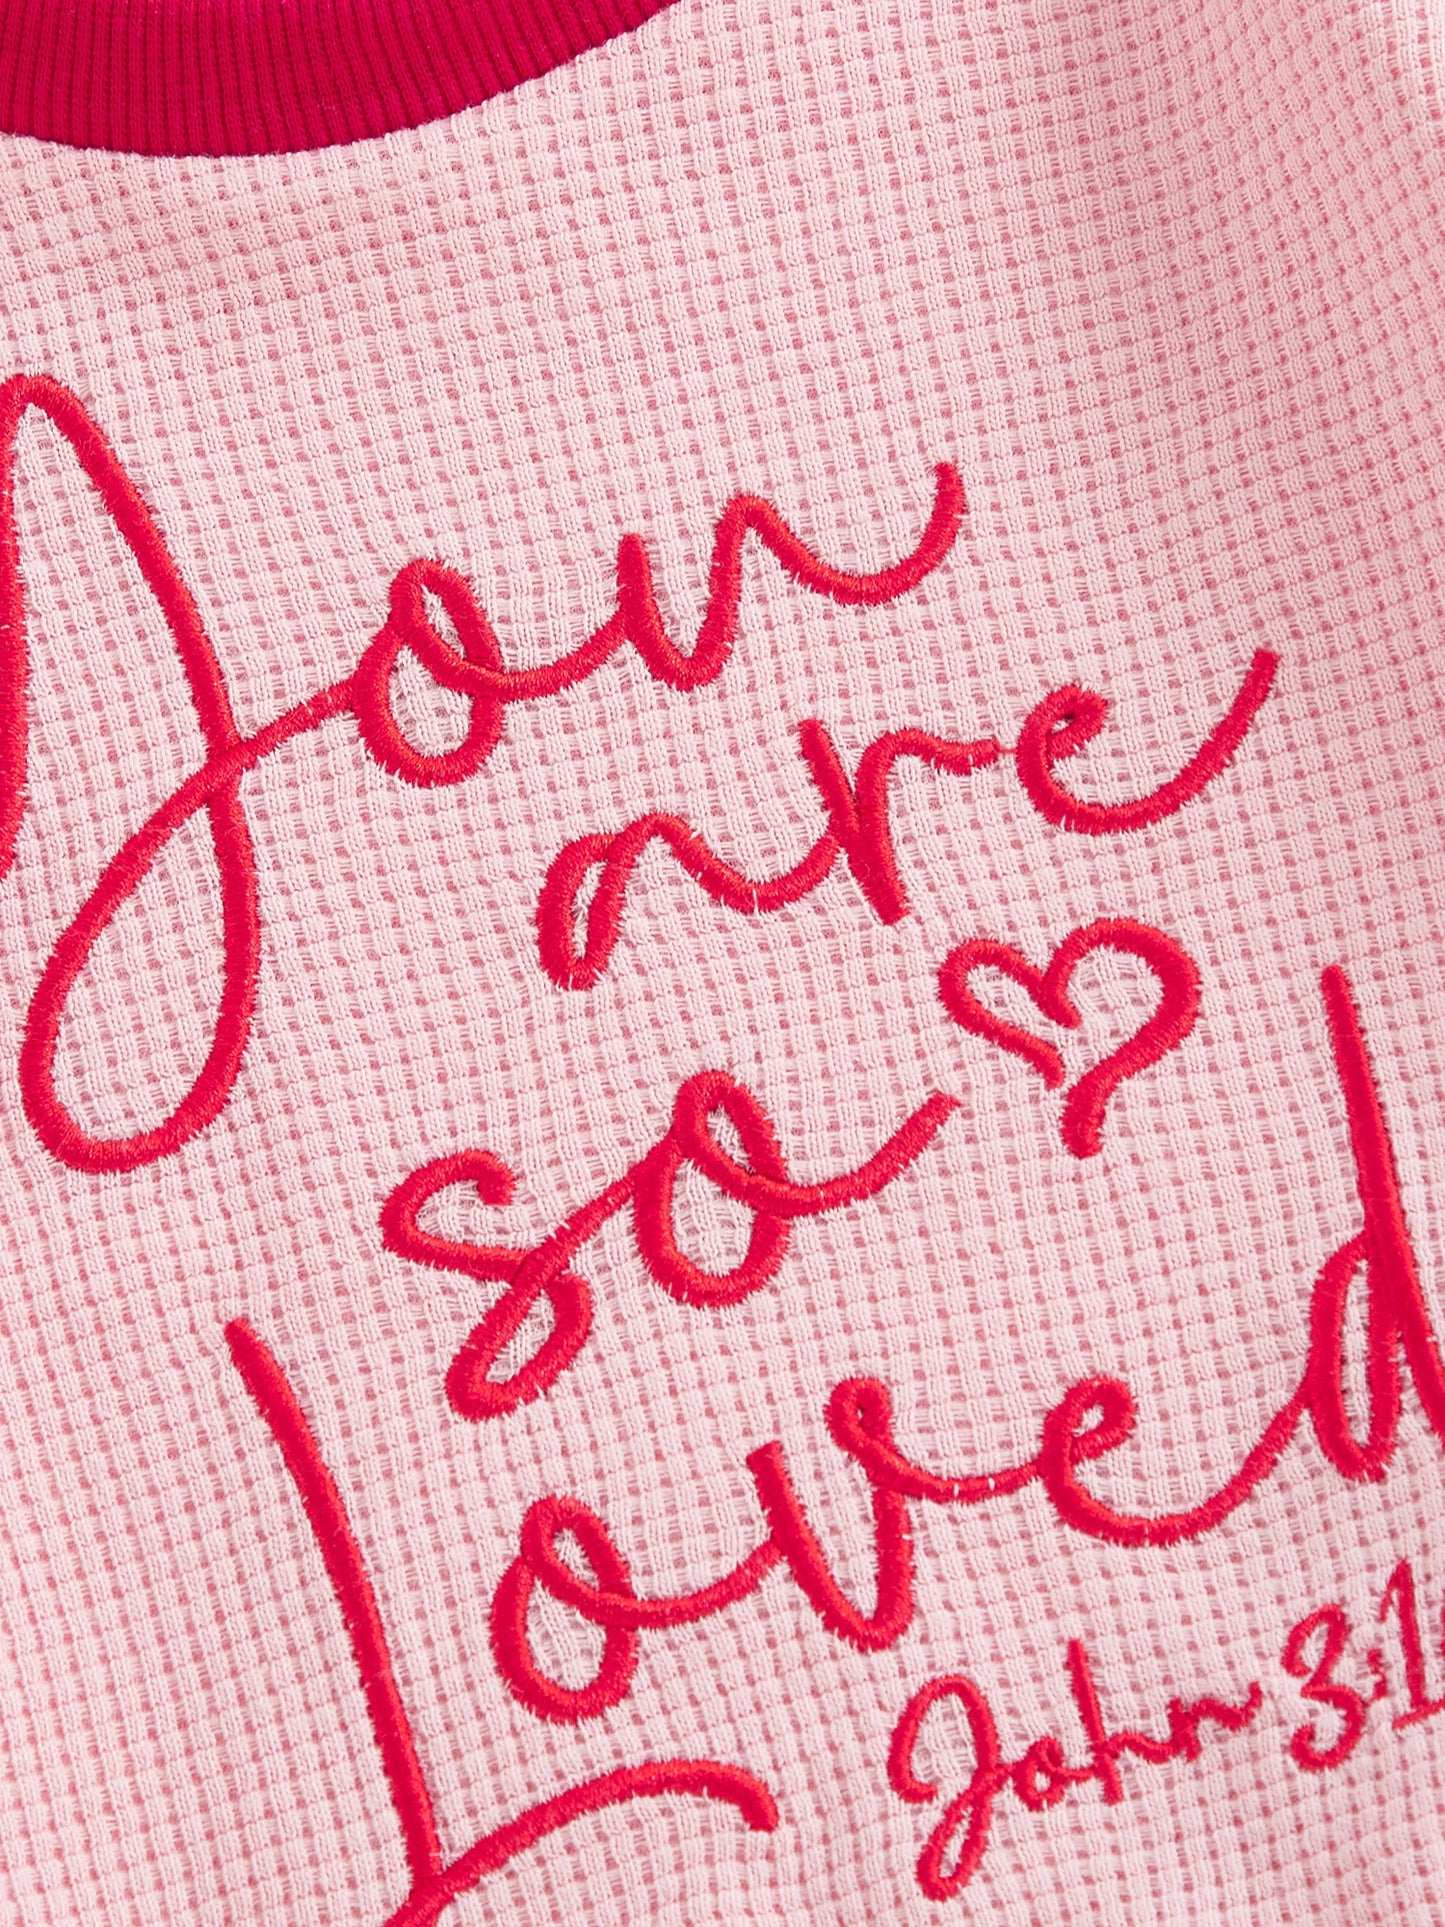 You
are
so
Loved
John 3:1